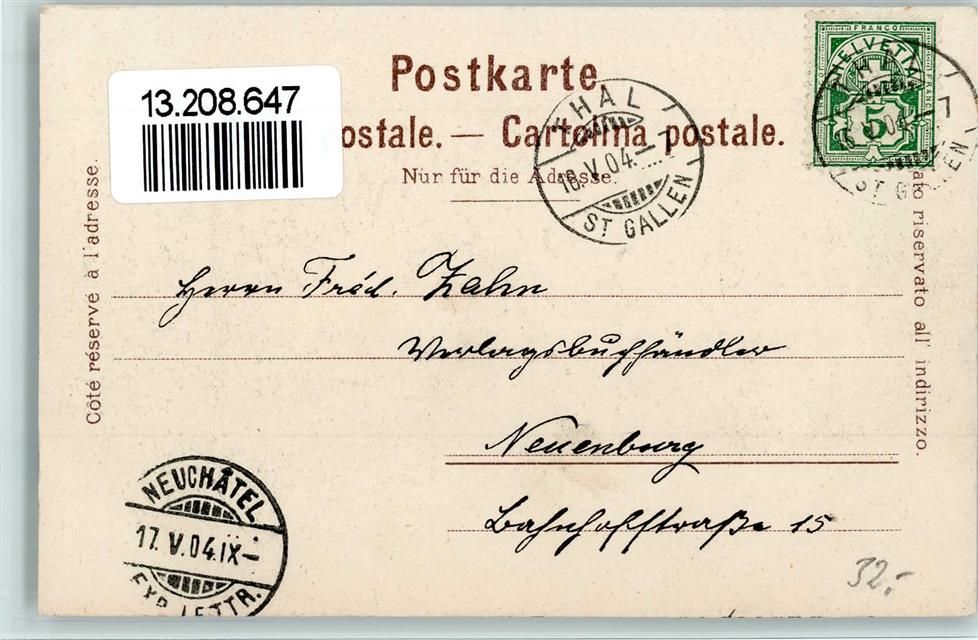 13.208.647
Postkarte
ostale. — Cartolina postale.
Nur für die Adresse.
Côté réservé à l'adresse.
ato riservato all' indirizzo.
FRANCO
HELVETIA
5
THAL
16. V. 04.
ST GALLEN
THAL
04
ST GALLEN
Herrn Fréd. Zahn
Verlagsbuchhändler
Neuenburg
Bahnhofstraße 15
NEUCHÂTEL
17. V. 04. IX–
EXP. LETTR.
32.-